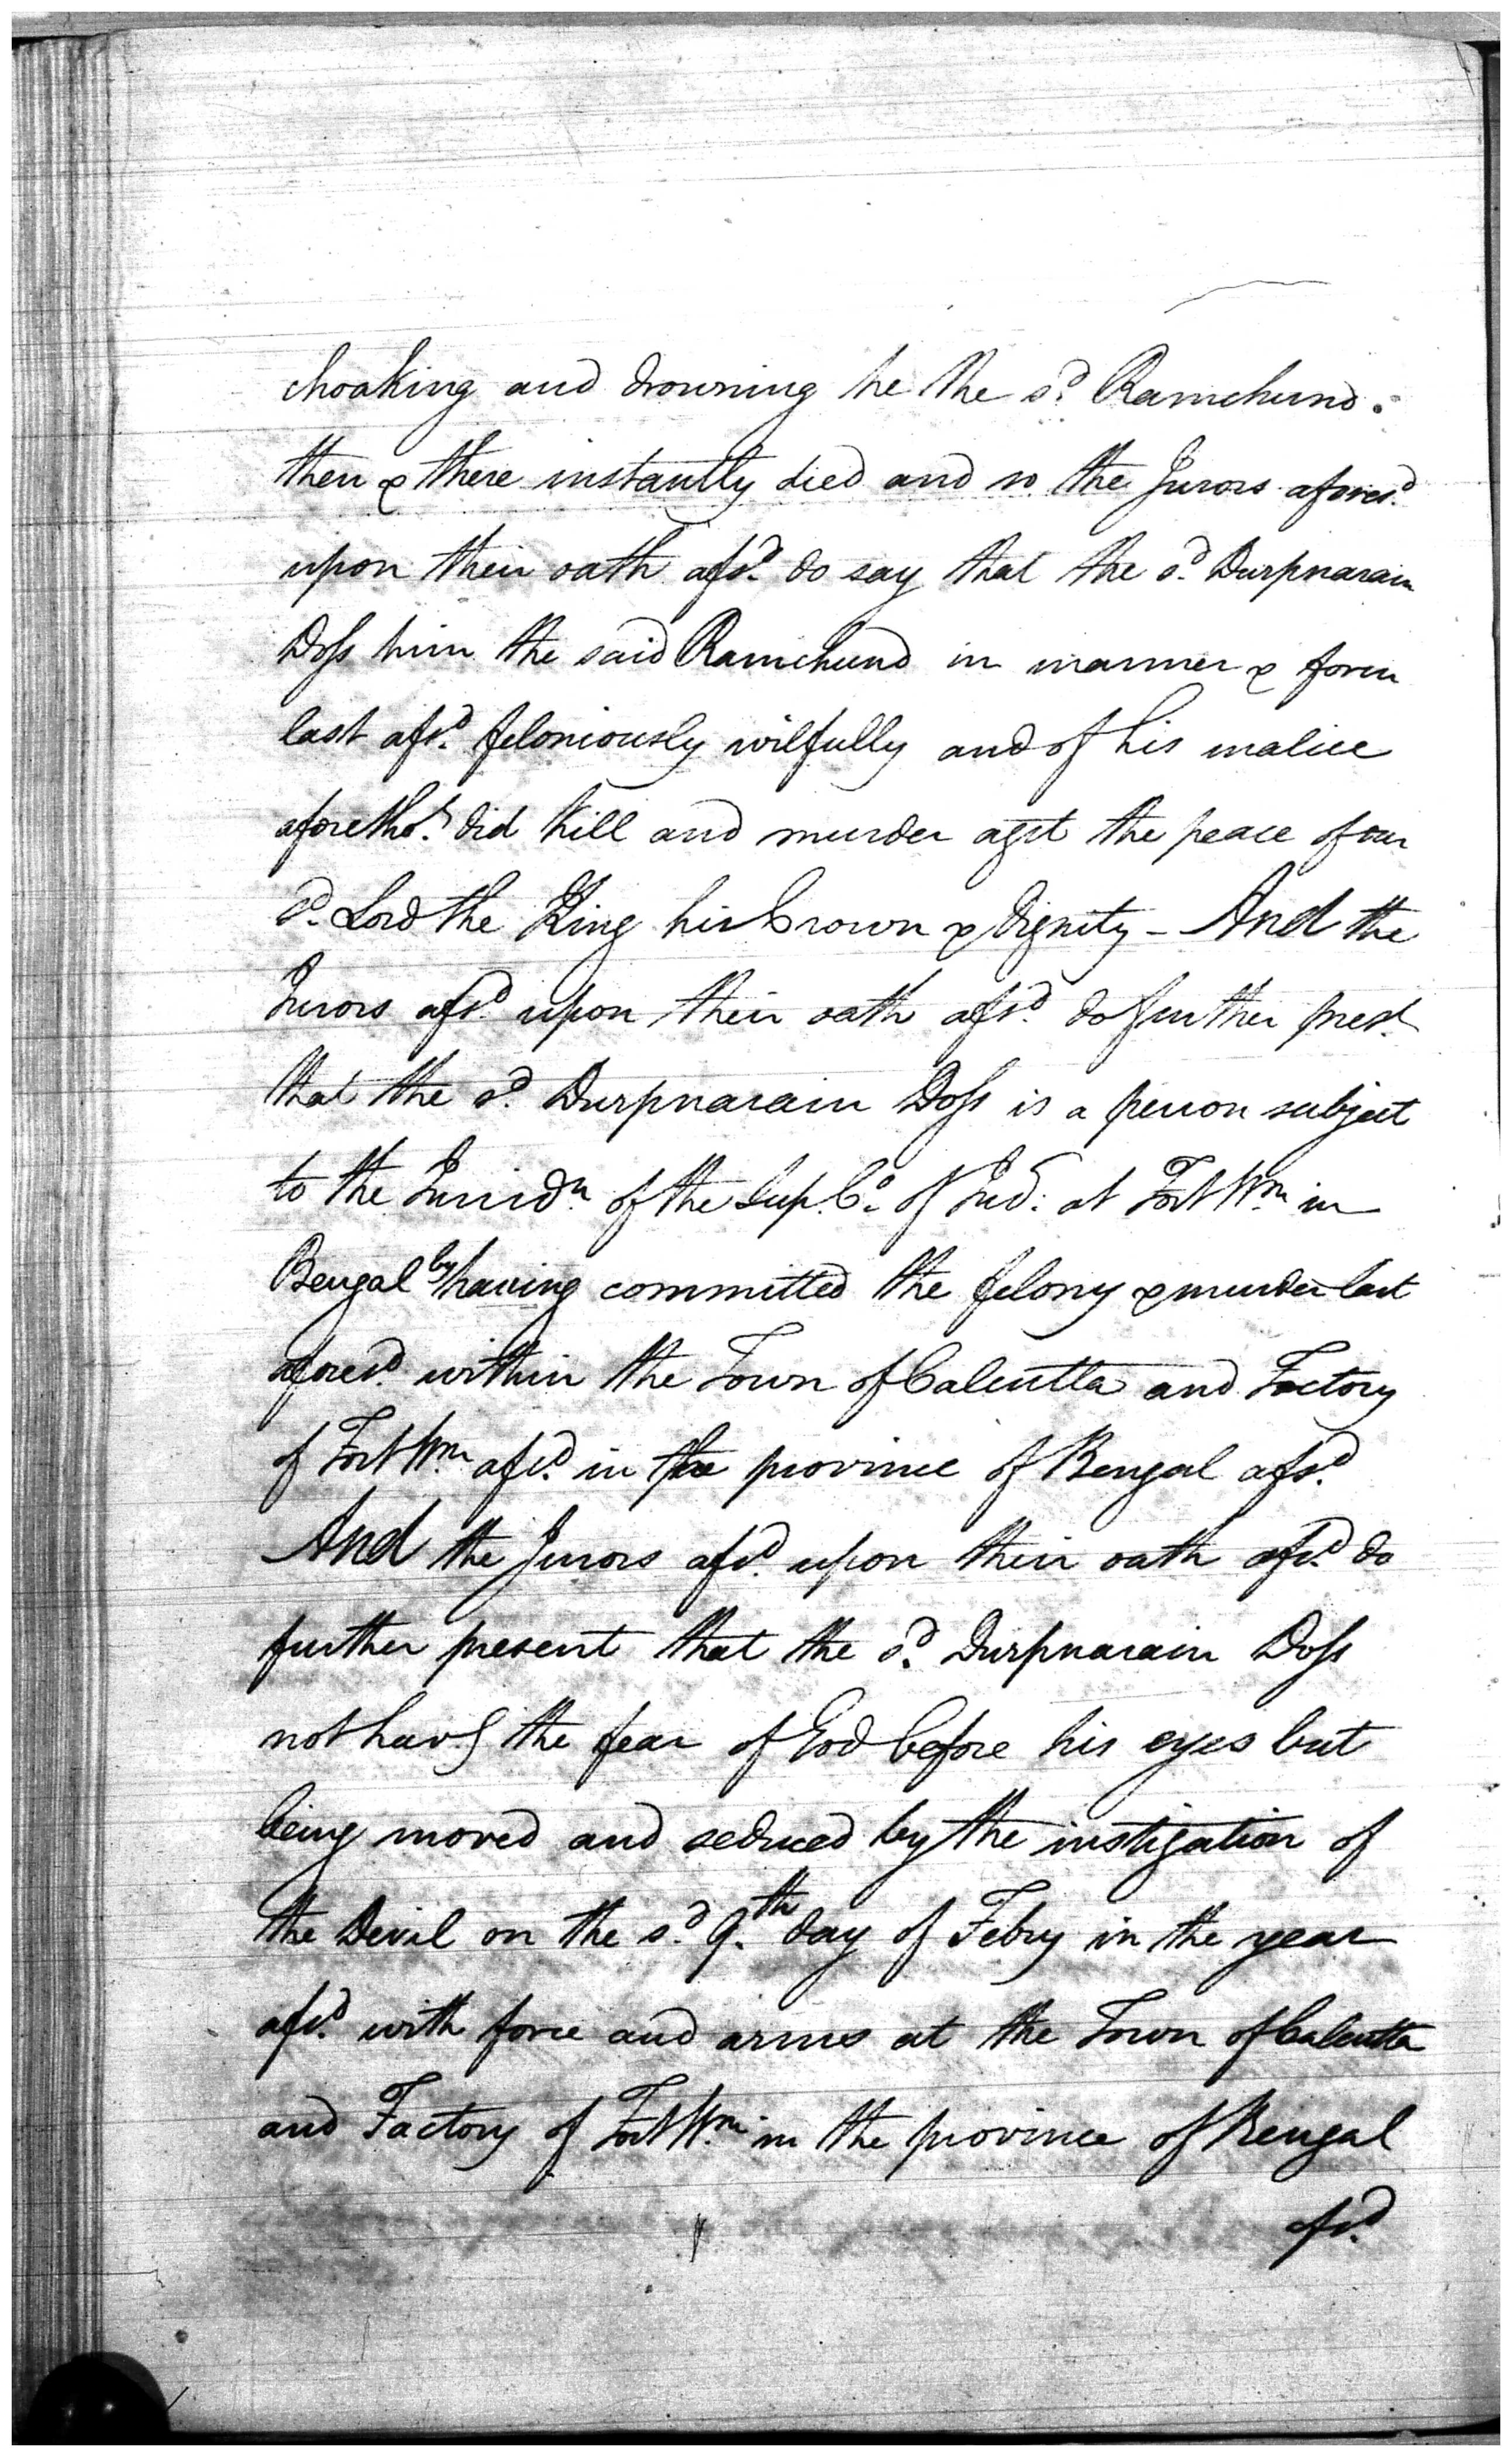 choaking and drowning he the sd. Ramchund.
then & there instantly died and so the Jurors aforesd.
upon their oath afsd. do say that the sd. Durpnarain
Doss him the said Ramchund in manner & form
last afsd. feloniously wilfully and of his malice
aforetht. did kill and murder agst the peace of our
sd. Lord the King his Crown & Dignity - And the
Jurors afsd. upon their oath afsd. do further prest.
that the sd. Durpnarain Doss is a person subject
to the Jurisdn. of the Sup. Ct. of Jud: at Fort Wm. in
Bengal by having committed the felony & murder last
aforesd. within the Town of Calcutta and Factory
of Fort Wm. afsd. in the province of Bengal afsd.
And the Jurors afsd. upon their oath afsd. do
further present that the sd. Durpnarain Doss
not havg. the fear of God before his eyes but
being moved and seduced by the instigation of
the Devil on the sd. 9.th day of Febry in the year
afsd. with force and arms at the Town of Calcutta
and Factory of Fort Wm. in the province of Bengal
afsd.